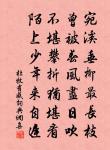 宛溪垂柳最長枝
曾被春風盡日吹
不堪攀折猶堪看
陌上少年來自遲
杜牧有感詞典網書